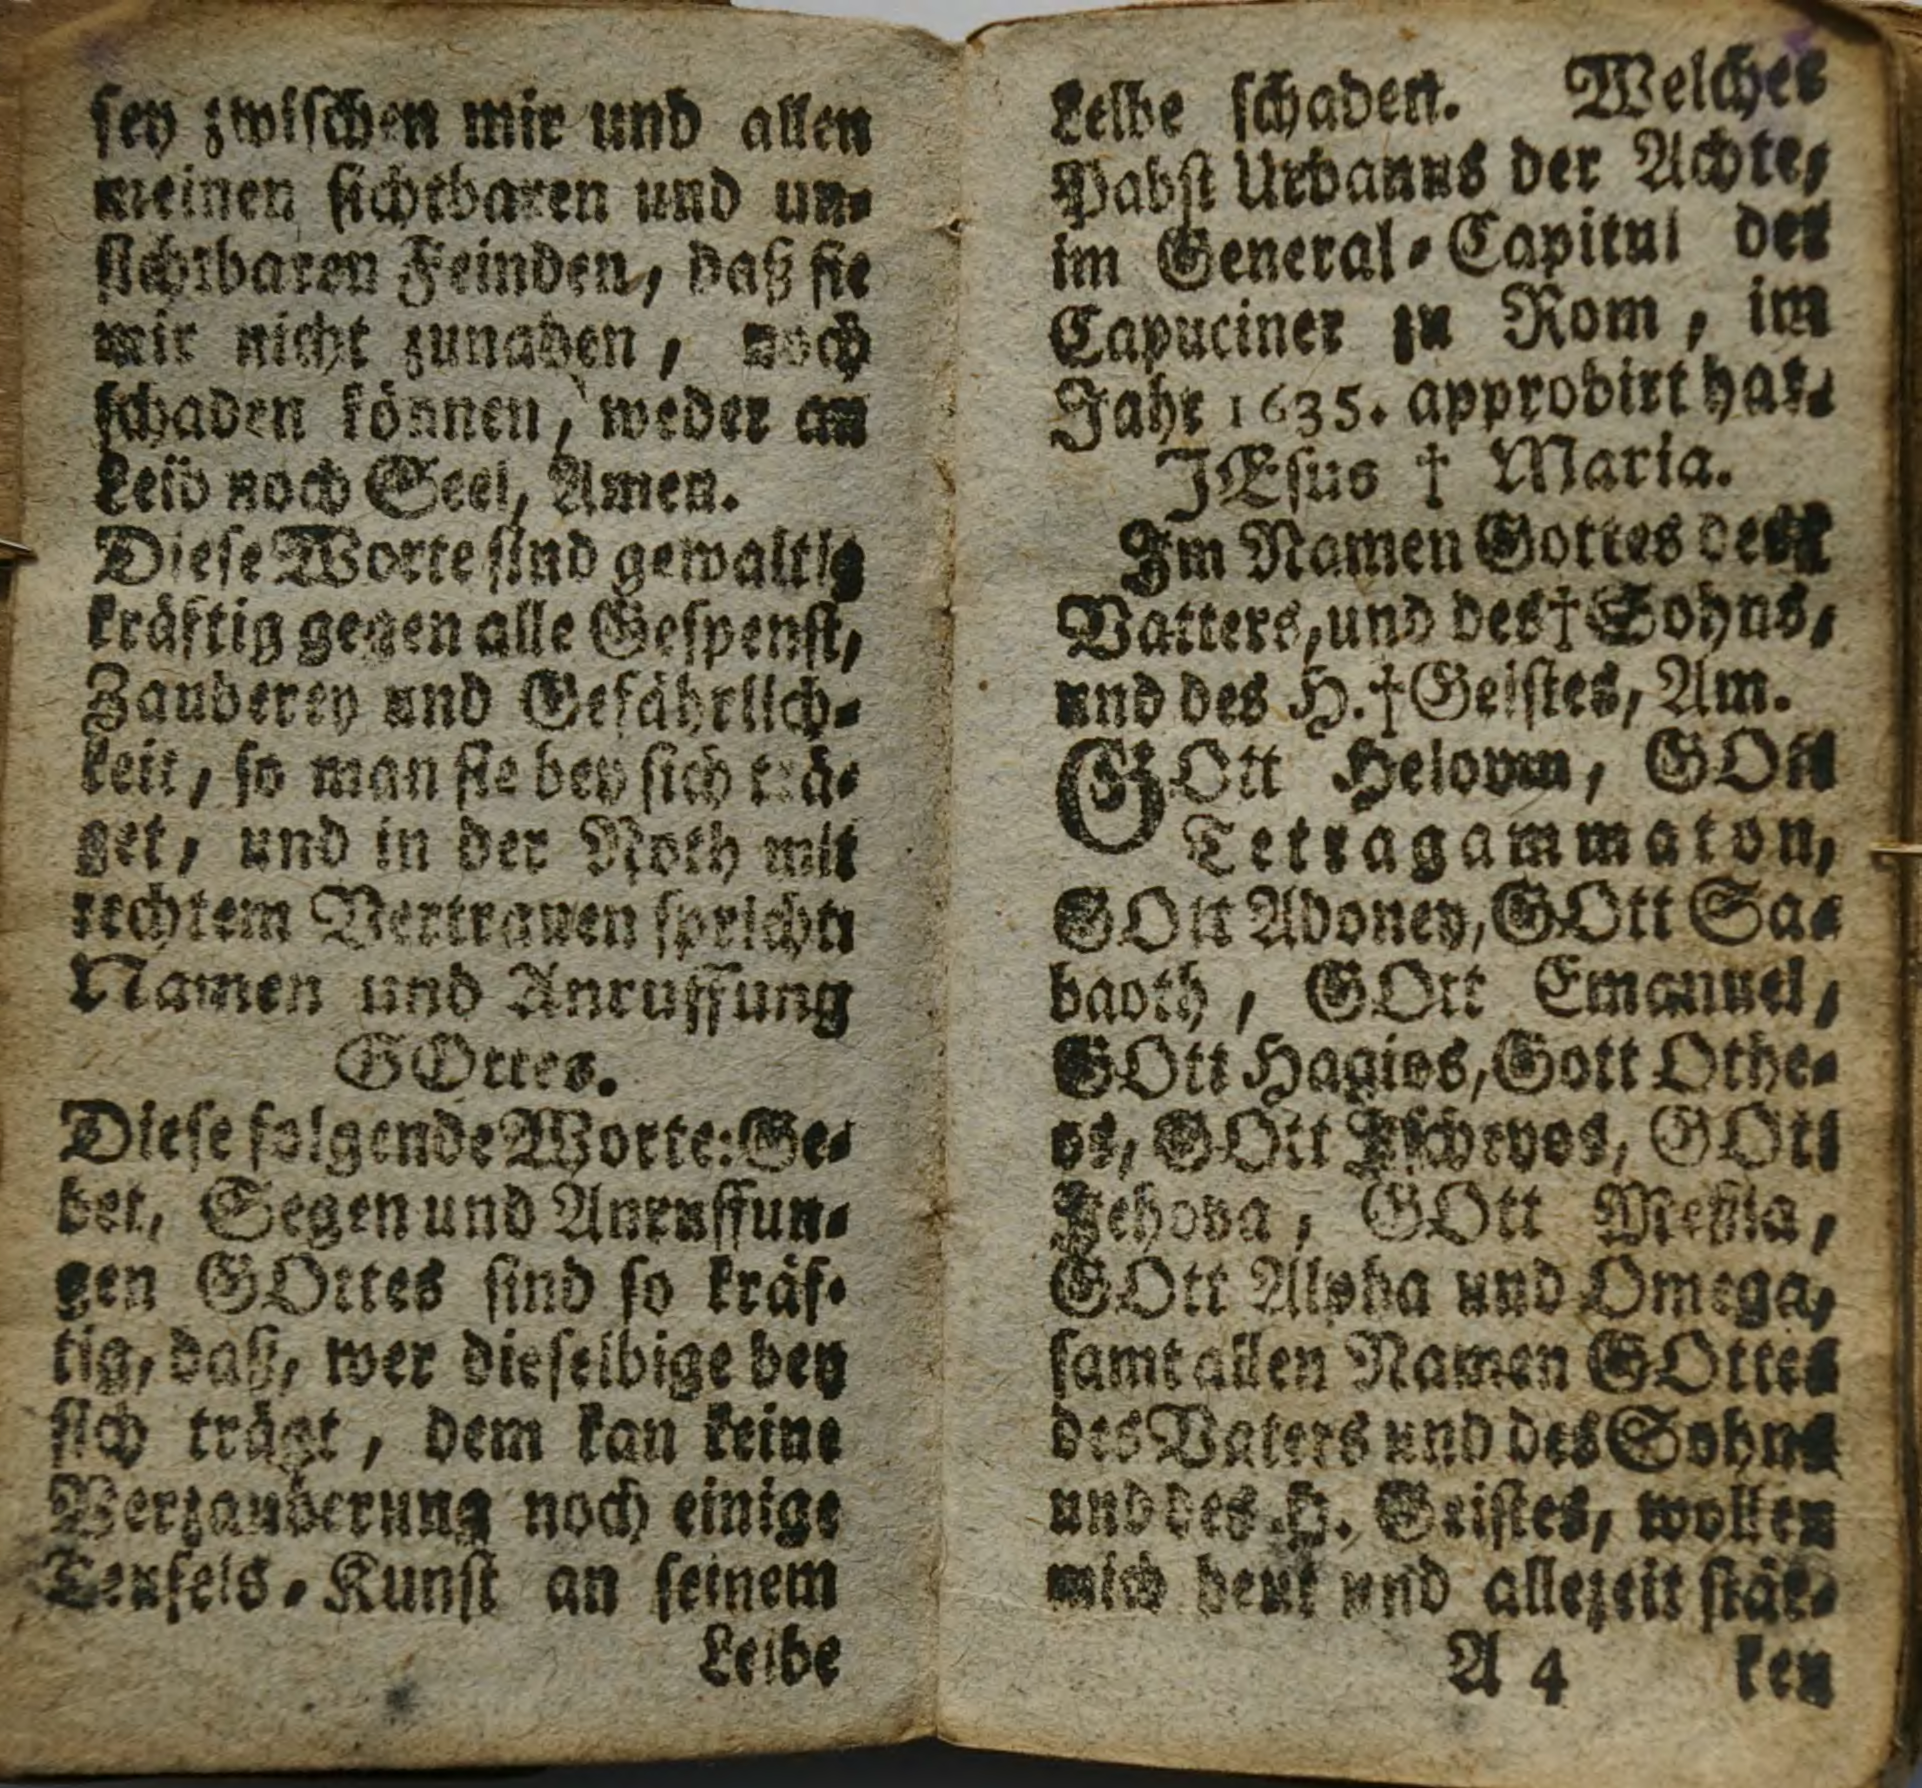 sey zwischen mir und allen
meinen sichtbaren und un-
sichtbaren Feinden, daß sie
mir nicht zunahen, noch
schaden können, weder an
Leib noch Seel, Amen.
Diese Worte sind gewaltig
kräftig gegen alle Gespenst,
Zauberey und Gefährlich-
keit, so man sie bey sich trä-
get, und in der Noth mit
rechtem Vertrauen spricht:
Namen und Anruffung
GOttes.
Diese folgende Worte: Ge-
bet, Segen und Anruffun-
gen GOttes sind so kräf-
tig, daß, wer dieselbige bey
sich trägt, dem kan keine
Verzauberung noch einige
Teufels-Kunst an seinem
Leibe
Leibe schaden. Welches
Pabst Urbanus der Achte,
im General-Capitul der
Capuciner zu Rom, im
Jahr 1635. approbirt hat.
JEsus † Maria.
Im Namen Gottes des †
Vatters, und des † Sohns,
und des H. † Geistes, Am.
GOtt Heloym, GOtt
Tetragammaton,
GOtt Adoney, GOtt Sa-
baoth, GOtt Emanuel,
GOtt Hagios, Gott Othe-
os, GOtt Ischyros, GOtt
Jehova, GOtt Meßia,
GOtt Alpha und Omega,
samt allen Namen GOttes
des Vaters und des Sohns
und des H. Geistes, wollen
mich heut und allezeit stär-
A 4 ken